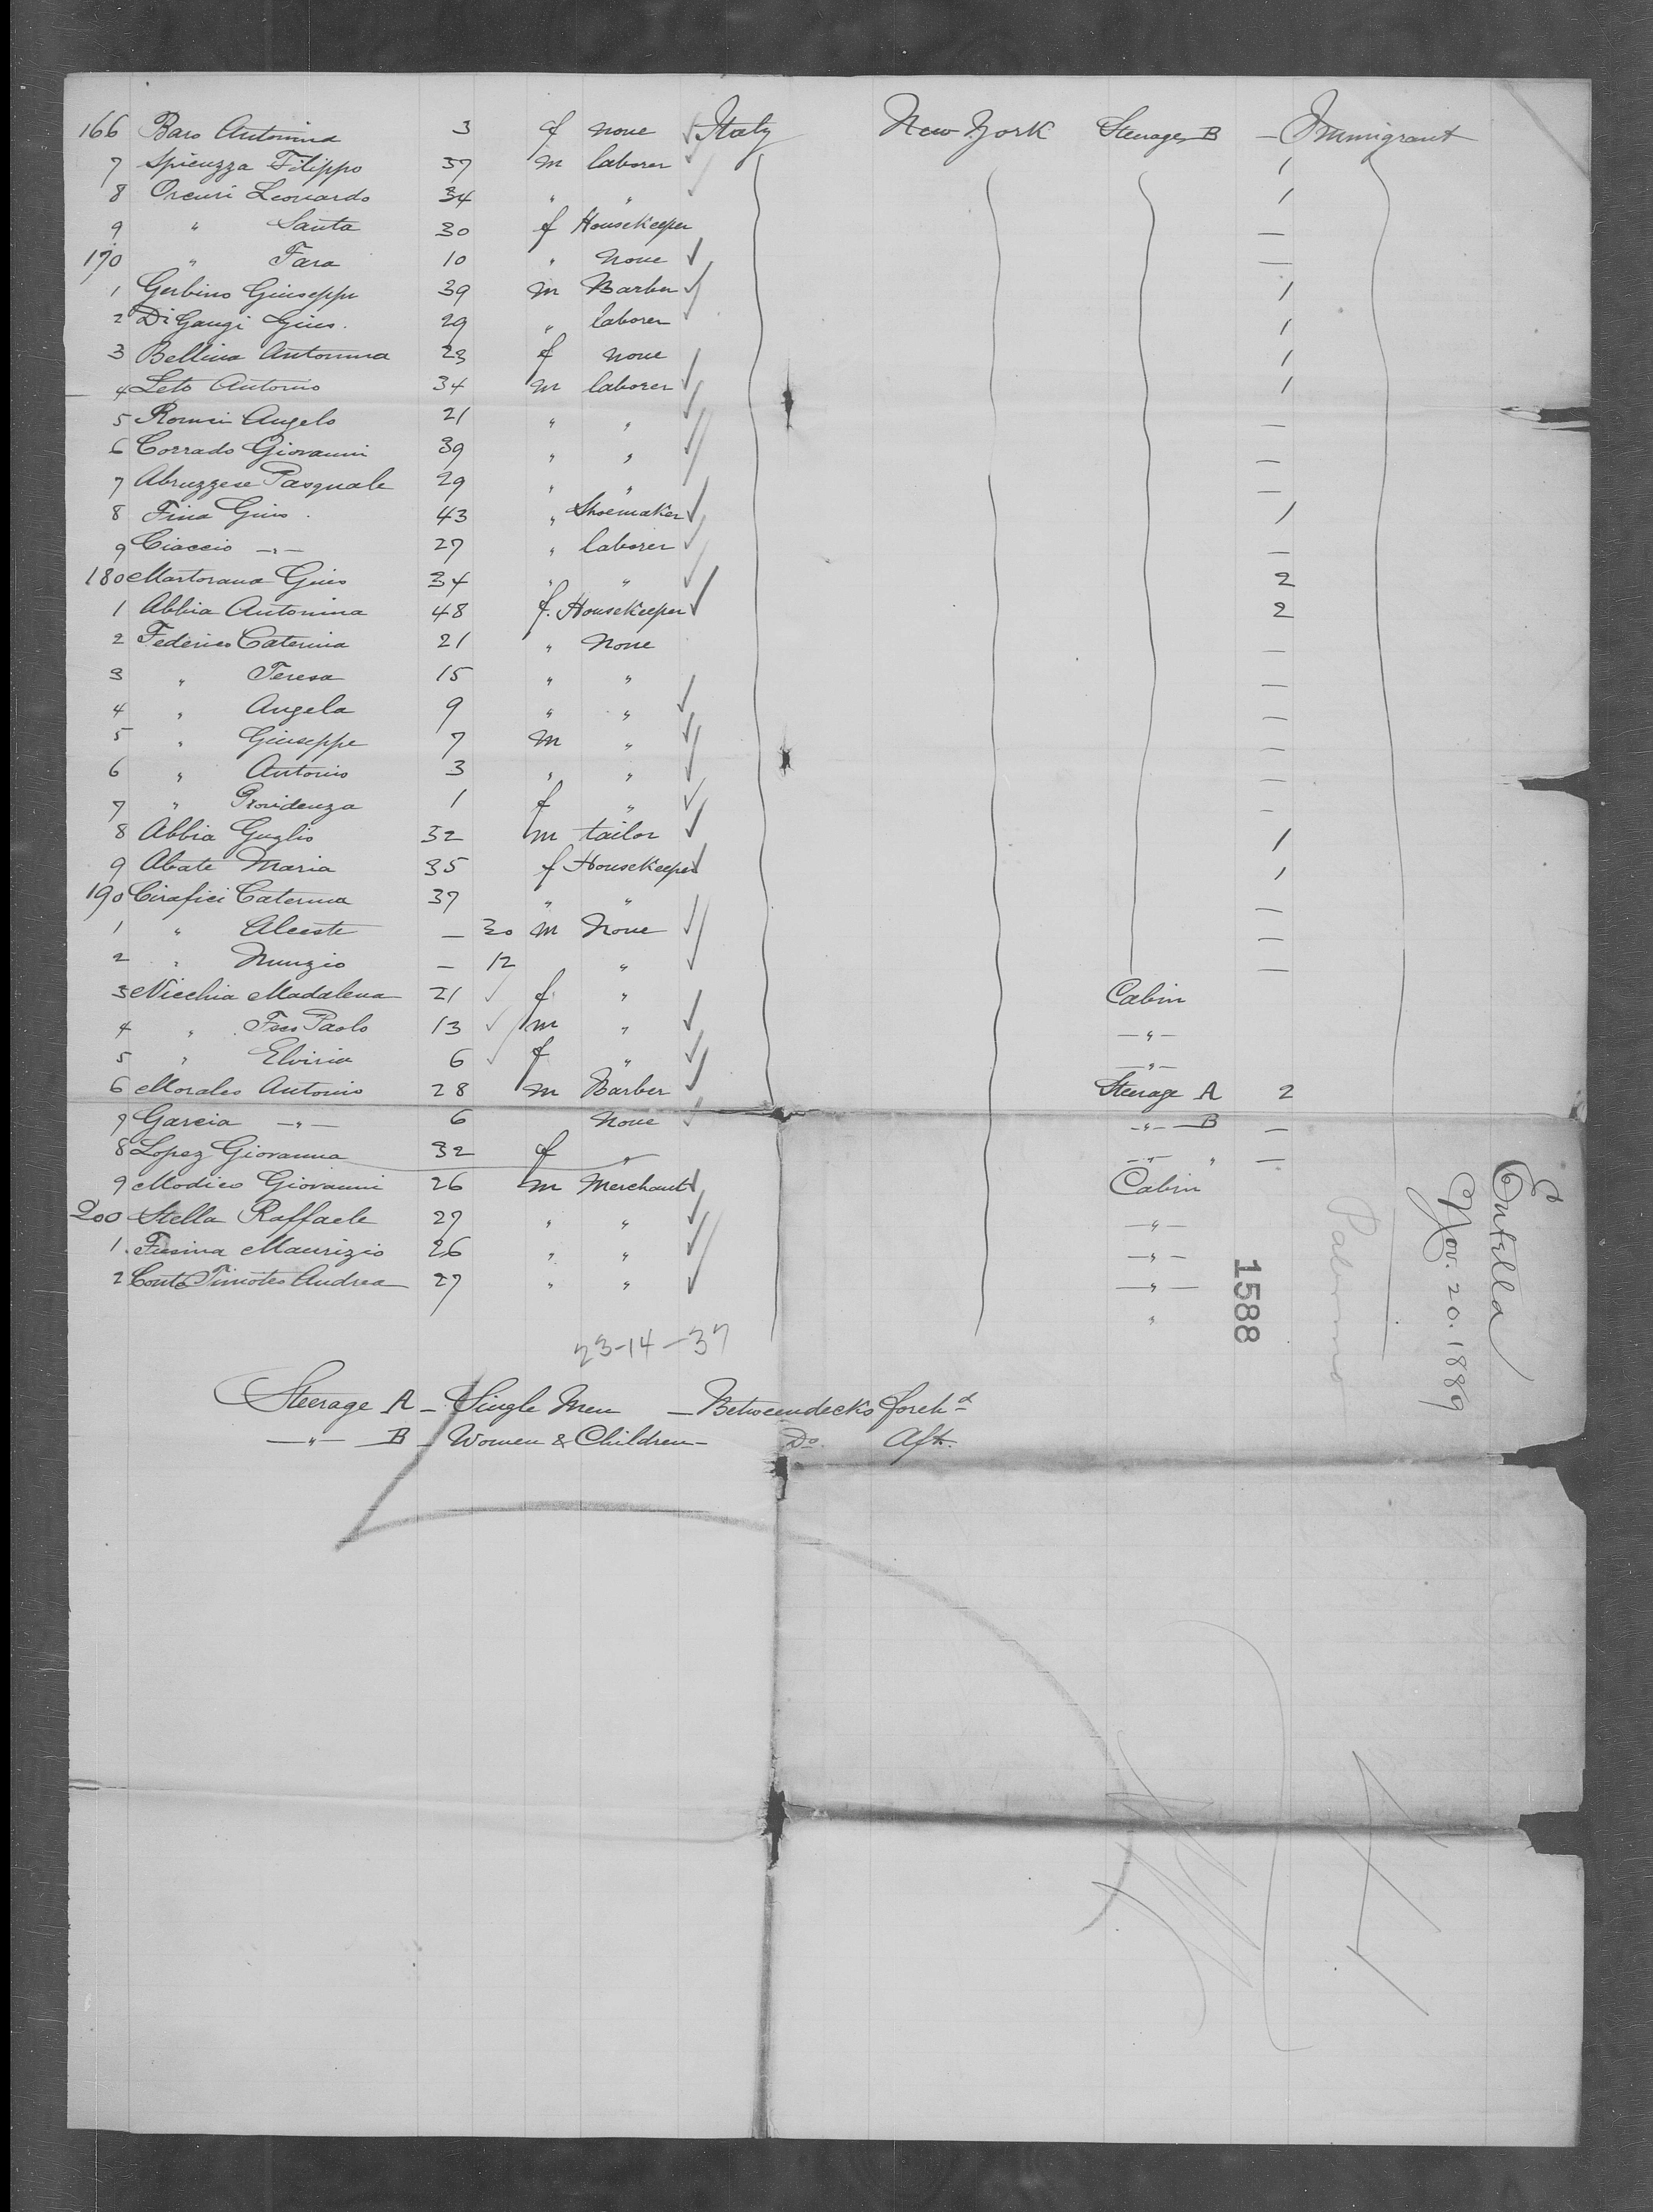 166 Baro Antonina 3 f none Italy New York Steerage B — Immigrant
7 Spicuzza Filippo 37 m laborer 1
8 Orcuri Leonardo 34 " " 1
9 " Santa 30 f Housekeeper —
170 " Fara 10 " none —
1 Gerbino Giuseppe 39 m Barber 1
2 DiGangi Gius. 29 " laborer 1
3 Bellina Antonina 23 f none 1
4 Leto Antonio 34 m laborer 1
5 Angelo 21 " " —
6 Corrado Giovanni 39 " " —
7 Abruzzese Pasquale 29 " " —
8 Fina Gius. 43 " Shoemaker 1
9 Ciaccio —"— 27 " laborer —
180 Martorana Gius 34 " " 2
1 Abbia Antonina 48 f. Housekeeper 2
2 Federico Caterina 21 " None —
3 " Teresa 15 " " —
4 " Angela 9 " " —
5 " Giuseppe 7 m " —
6 " Antonio 3 " " —
7 " Providenza 1 f " —
8 Abbia Guglio 32 m tailor 1
9 Abate Maria 35 f Housekeeper 1
190 Cirafici Caterina 37 " " —
1 " Alceste — 30 m None —
2 " Nunzio — 12 " —
3 Nicchia Madalena 21 f " Cabin
4 " Fco Paolo 13 m " —"—
5 " Elviria 6 f " —"—
6 Morales Antonio 28 m Barber Steerage A 2
7 Garcia —"— 6 none —"— B —
8 Lopez Giovanna 32 f " —"— " —
9 Modico Giovanni 26 m Merchant Cabin
200 Stella Raffaele 27 " " —"—
1 Fusina Maurizio 26 " " —"—
2 Conte Timoteo Andrea 27 " " —"—
"
23-14-37
Steerage A — Single Men — Betweendecks forch'd
—"— B — Women & Children — Do Aft.
Entella
Nov. 20. 1889
Palermo
1588